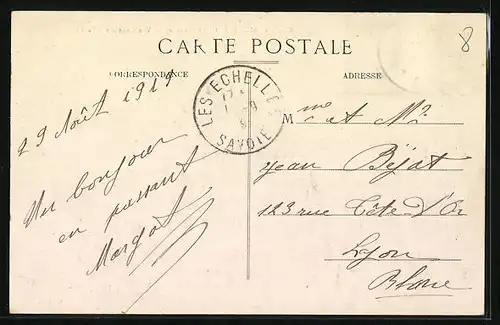 CARTE POSTALE
8
CORRESPONDANCE
ADRESSE
LES ECHELLES
SAVOIE
29 Août 1917
Un bonjour
en passant
Margot
Mme et Mr
Jean Béjat
123 rue Tête d'Or
Lyon
Rhône